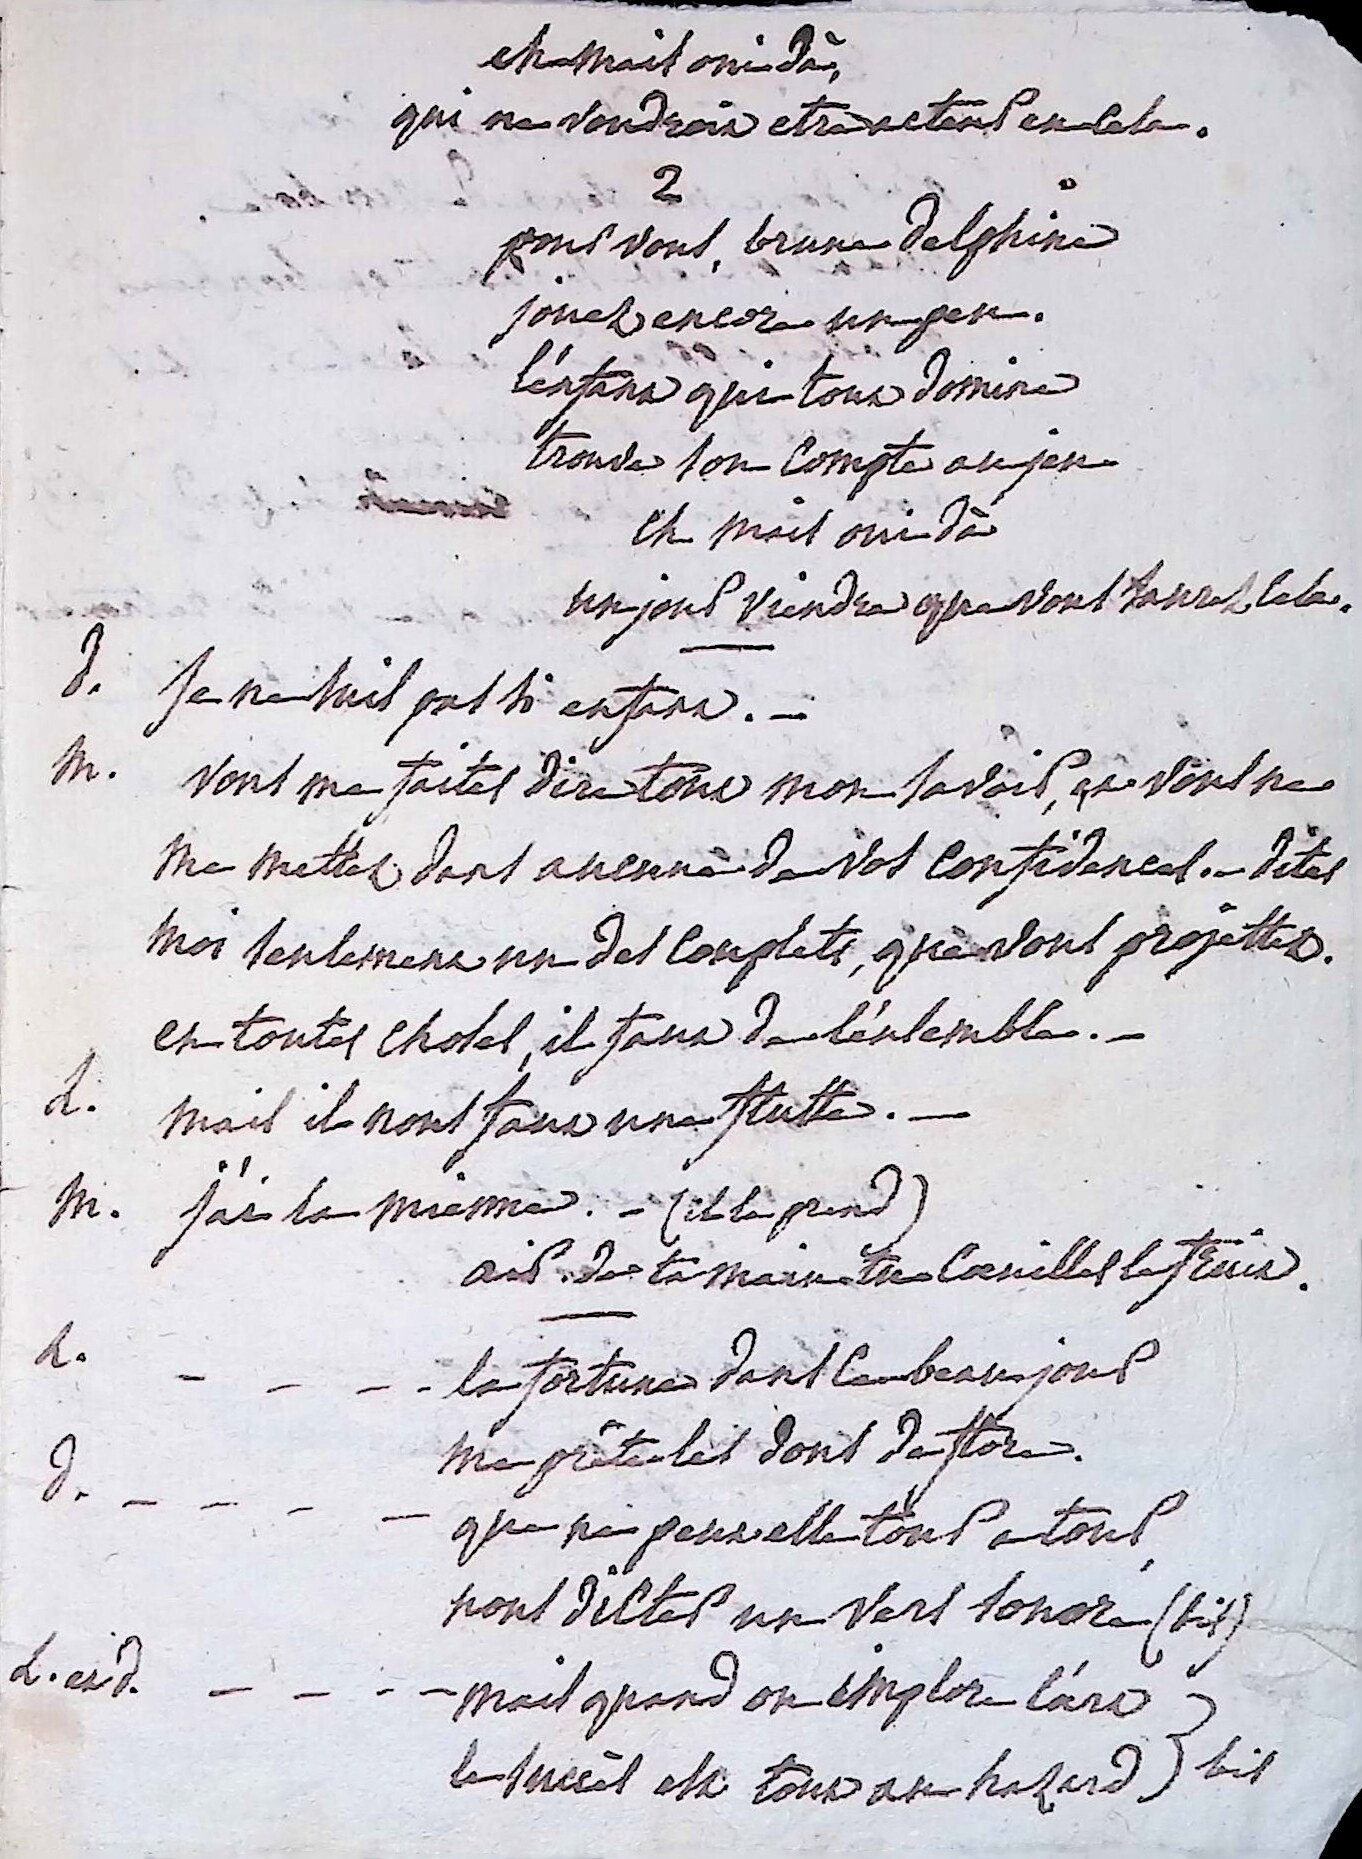 eh mais oui dà,
qui ne voudroit etre acteur en cela.
2
pour vous, brune delphine
jouez encore un peu.
l'énfant qui tout domine
trouve son compte au jeu
eh mais oui dà
un jour viendra que vous saurez cela.
d. je ne suis pas si enfant. –
m. vous me faites dire tout mon savoir, et vous ne
me mettez dans aucune de vos confidences. – dites
moi seulement un des couplets, que vous projettez.
en toutes choses, il faut de l'énsemble. –
L. mais il nous faut une flutte. –
m. j'ái la mienne. – (il la prend)
air. de ta main tu coeuilles le fruit.
L. - - - - la fortune dans ce beau jour
me prête les dons de flore.
d. - - - - que ne peut elle tour a tour,
nous dicter un vers sonore (bis)
L. et d. - - - - mais quand on implore l'árt
le succès est tout au hazard } bis